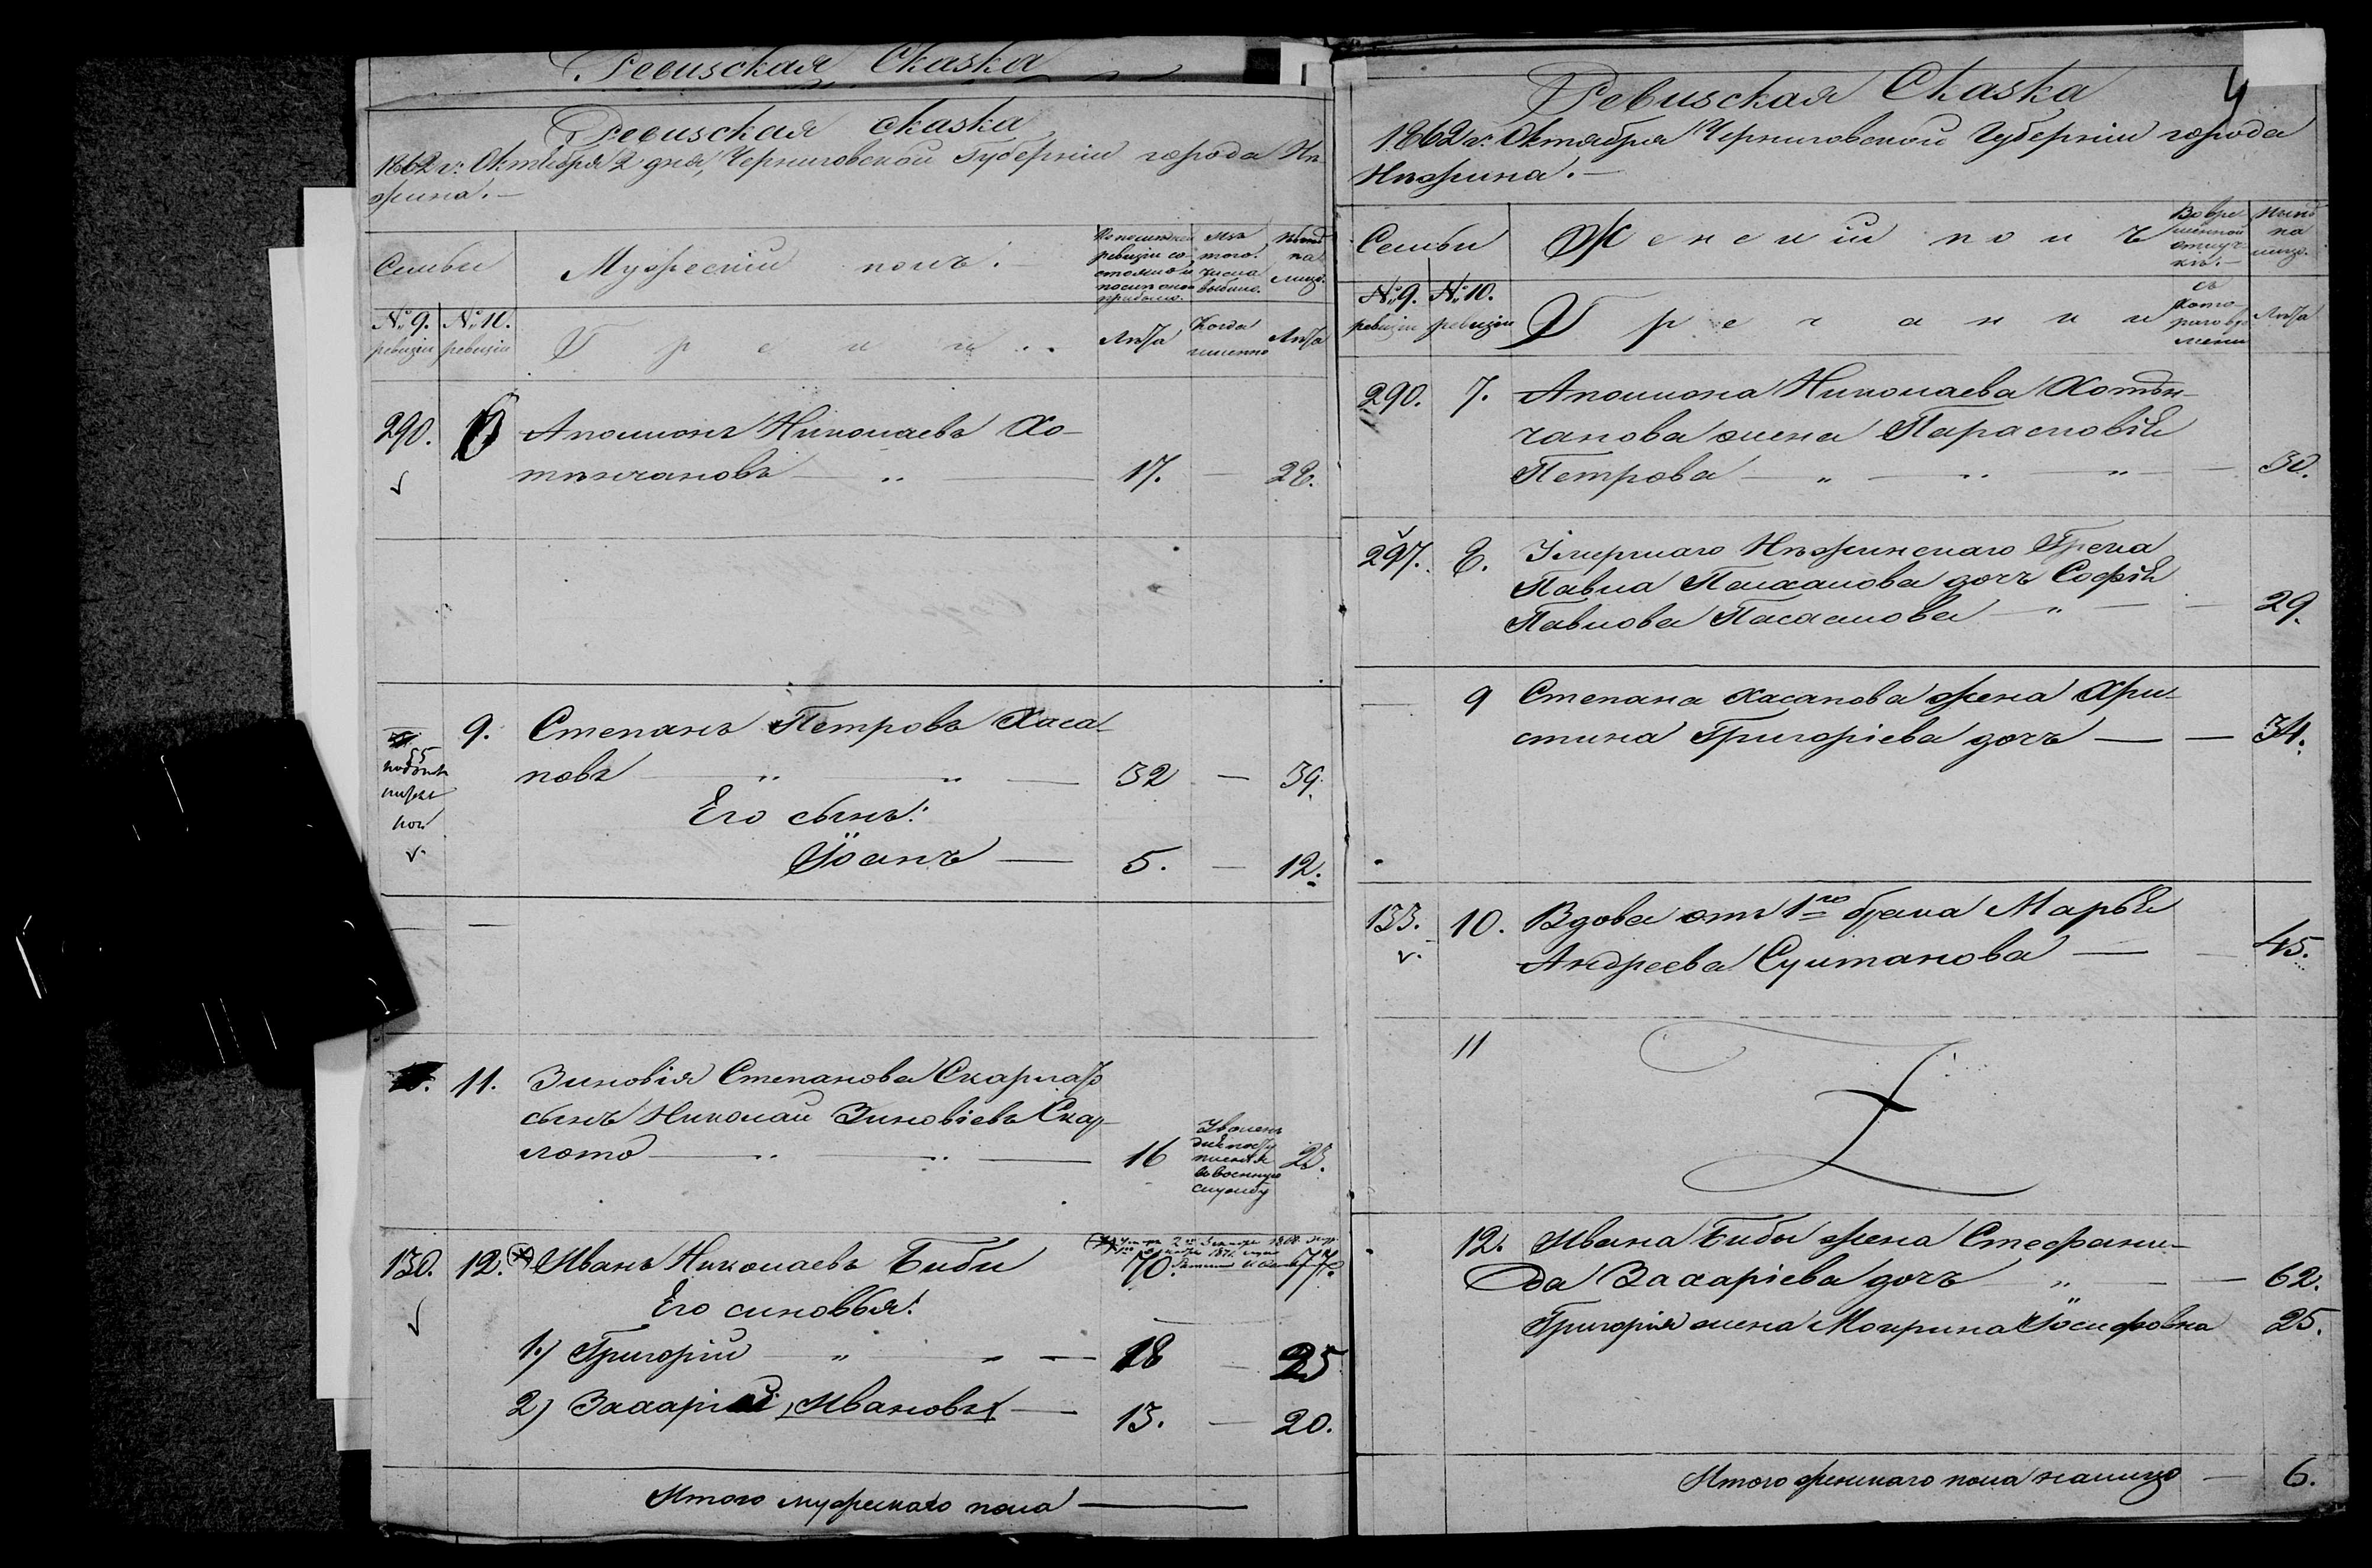 Ревизская Сказка
Ревизская сказка
1862 г. Октября 2 дня, Черниговской Губернiи города Нѣ-
жина.
Семьи
Мужескiй полъ.
По последней ревизiи состояло и после оной прибыло.
Изъ того числа выбыло.
Нынѣ на лицо.
№ 9. ревизiи
№ 10. ревизiи
Греки
Лѣта
Когда именно
Лѣта
290. Аполлонъ Николаевъ Хо-
тѣнчановъ 17. 28.
9. Степанъ Петровъ Хаса-
повъ 32 — 39.
Его сынъ:
Iоанъ — 5. — 12.
11. Зиновiя Степанова Скарлато
сынъ Николай Зиновiевъ Скар-
лато 16 23.
въ военную
службу
130. 12. Иванъ Николаевъ Биби 70. 77.
Его синовья:
1.) Григорiй — 18 — 25
2) Захарiй, Ивановы — 13. — 20.
Итого мужескаго пола —
Ревизская Сказка
4
1862 г. Октября Черниговской Губернiи города
Нѣжина.
Семьи
Женскiй полъ
Во временной отлучкѣ.
Нынѣ на лицо.
№ 9. ревизiи
№ 10. ревизiи
Гречанки
съ которого времени
Лѣта
290. 7. Аполлона Николаева Хотѣн-
чанова жена Парасковiя
Петрова — 30.
297. 8. Умершаго Нѣжинскаго Грека
Павла дочь Софiя
Павлова 29.
9 Степана Хасапова жена Хри-
стина Григорiева дочь — — 34.
133. 10. Вдова отъ 1го брака Марья
Андреева Султанова — 45.
11
12. Ивана Биби жена Стефани-
да Захарiева дочь — 62.
Григорiя жена Мокрина Iосифовна 25.
Итого женскаго пола налицо — 6.